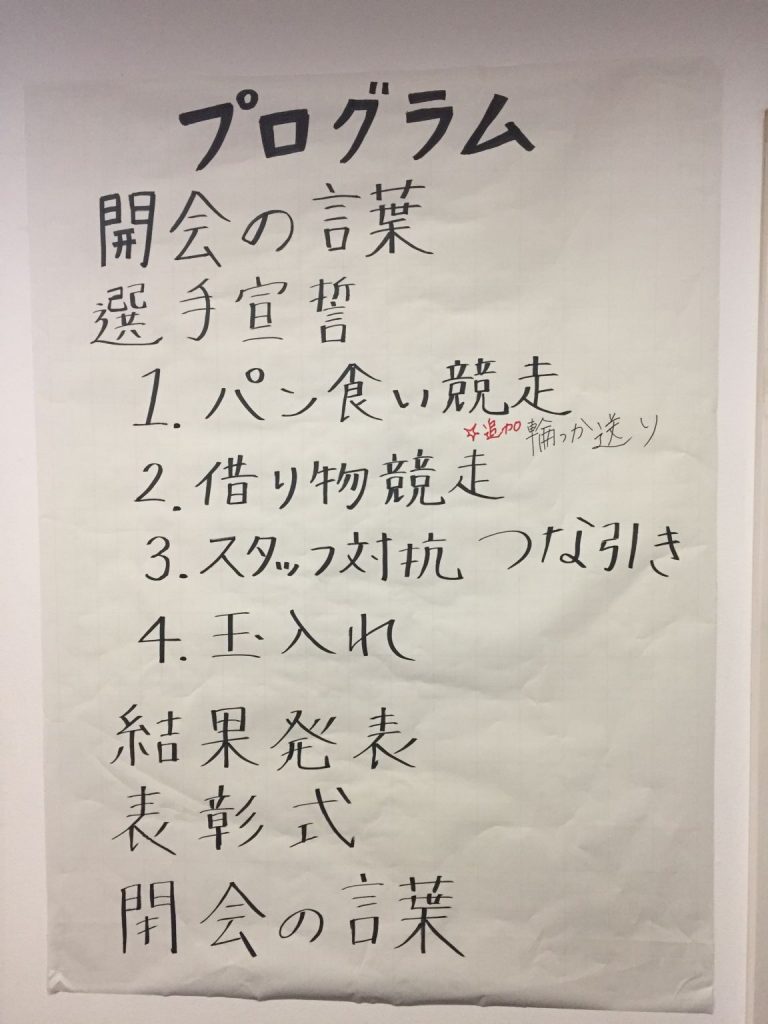 プログラム
開会の言葉
選手宣誓
1. パン食い競走
☆追加 輪っか送り
2. 借り物競走
3. スタッフ対抗 つな引き
4. 玉入れ
結果発表
表彰式
閉会の言葉